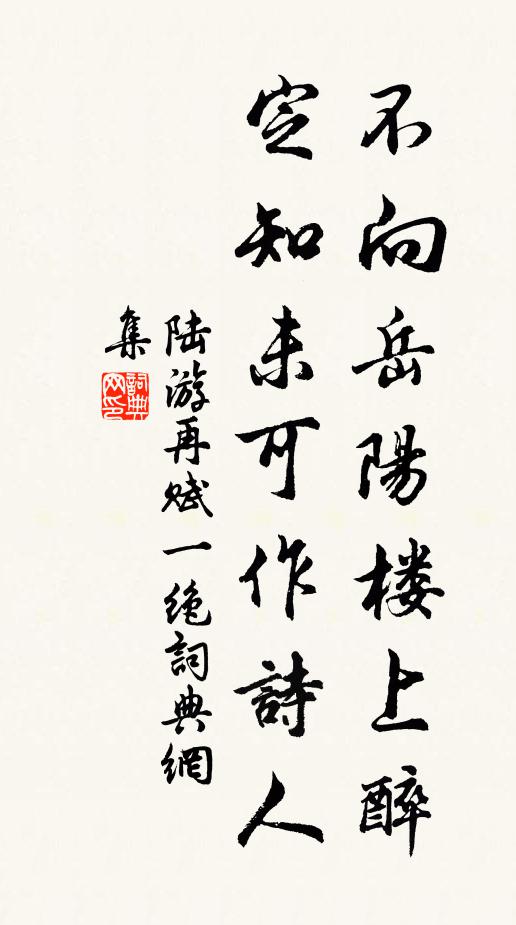 不向岳陽楼上醉
定知未可作詩人
陆游再赋一绝詞典網
集
詞典
网印